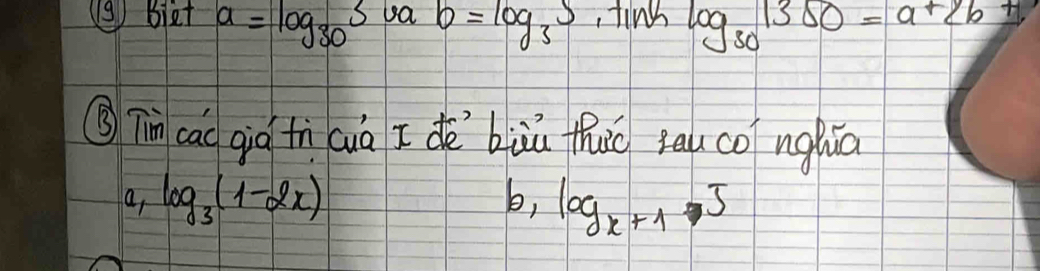 19) Biết a = log₃₀ 3 và b = log₃ 5, tính log₃₀ 1350 = a + 2b +
③ Tìm các giá trị của x để biểu thức sau có nghĩa
a, log₃(1-2x) b, logₓ₊₁ 5